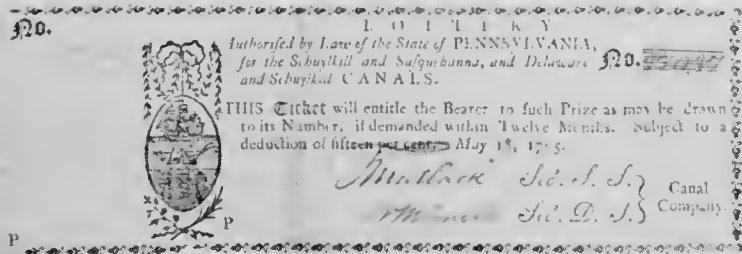 No.
LOTTERY
Authorised by Law of the State of PENNSYLVANIA,
for the Schuylkill and Susquehanna, and Delaware
and Schuylkill CANALS.
No.
THIS Ticket will entitle the Bearer to such Prize as may be drawn
to its Number, if demanded within Twelve Months. Subject to a
deduction of fifteen per cent. May 1st, 1795.
Matlack Sec. S. S.
Sec. D. S.
Canal
Company.
P
P